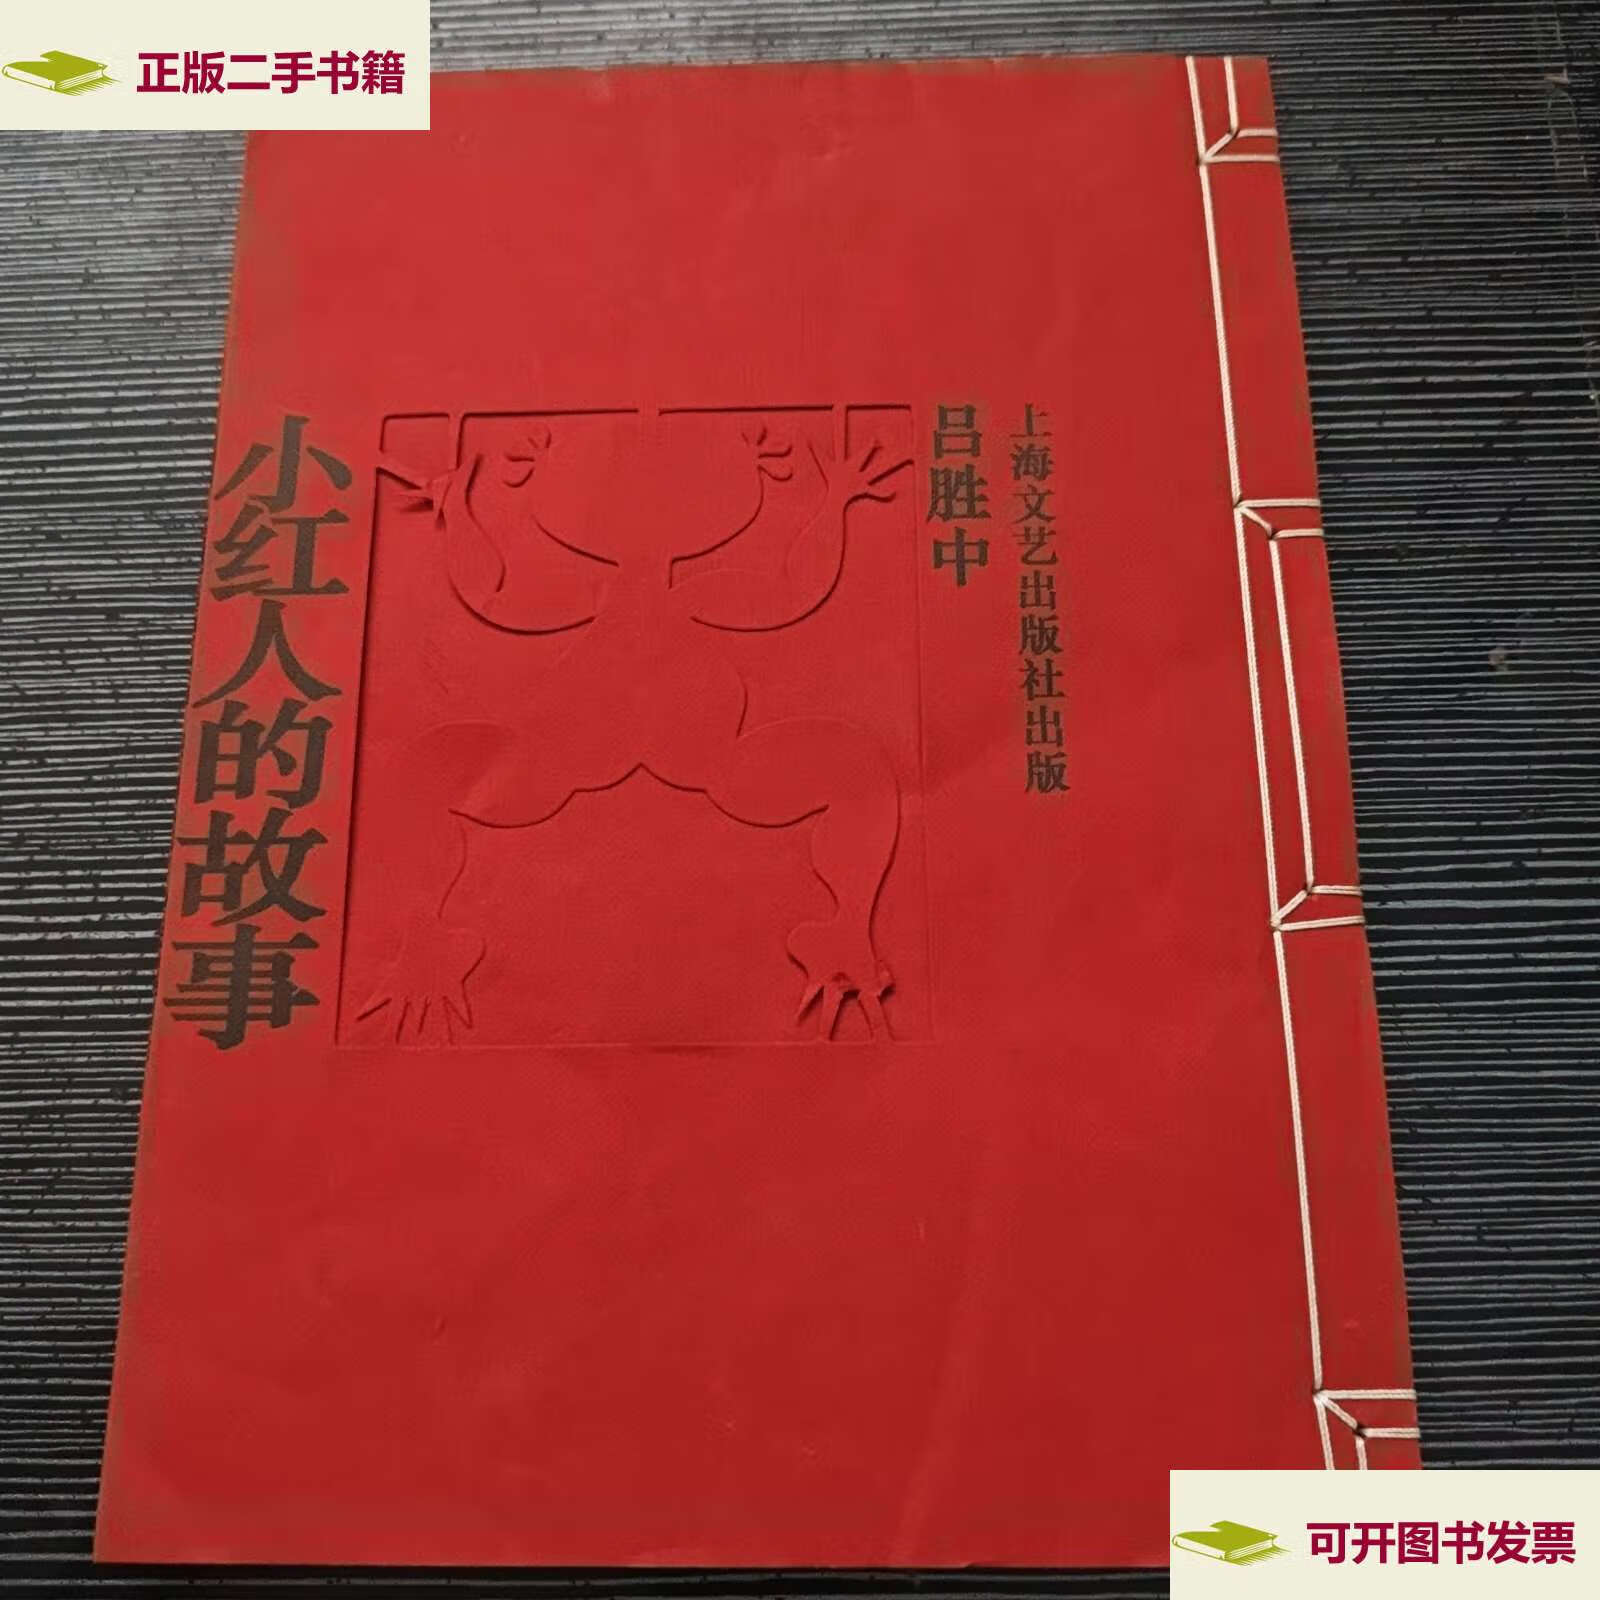 正版二手书籍
小红人的故事
吕胜中
上海文艺出版社出版
可开图书发票